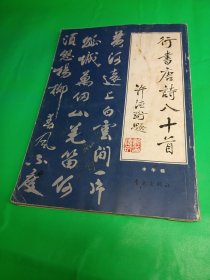 行書唐詩八十首
黃河遠上白雲間一片
孤城萬仞山羌笛何
須怨楊柳
春風不度